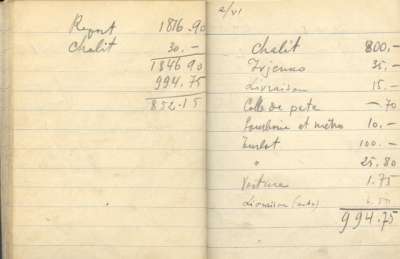 Report 1816.90
Chalit 30.-
1846 90
994.75
852.15
2/VI
Chalit 800.-
35.-
Livraison 15.-
Colle de pate -70
et métro 10.-
100.-
" 25.80
Voiture 1.75
Livraison
994.75